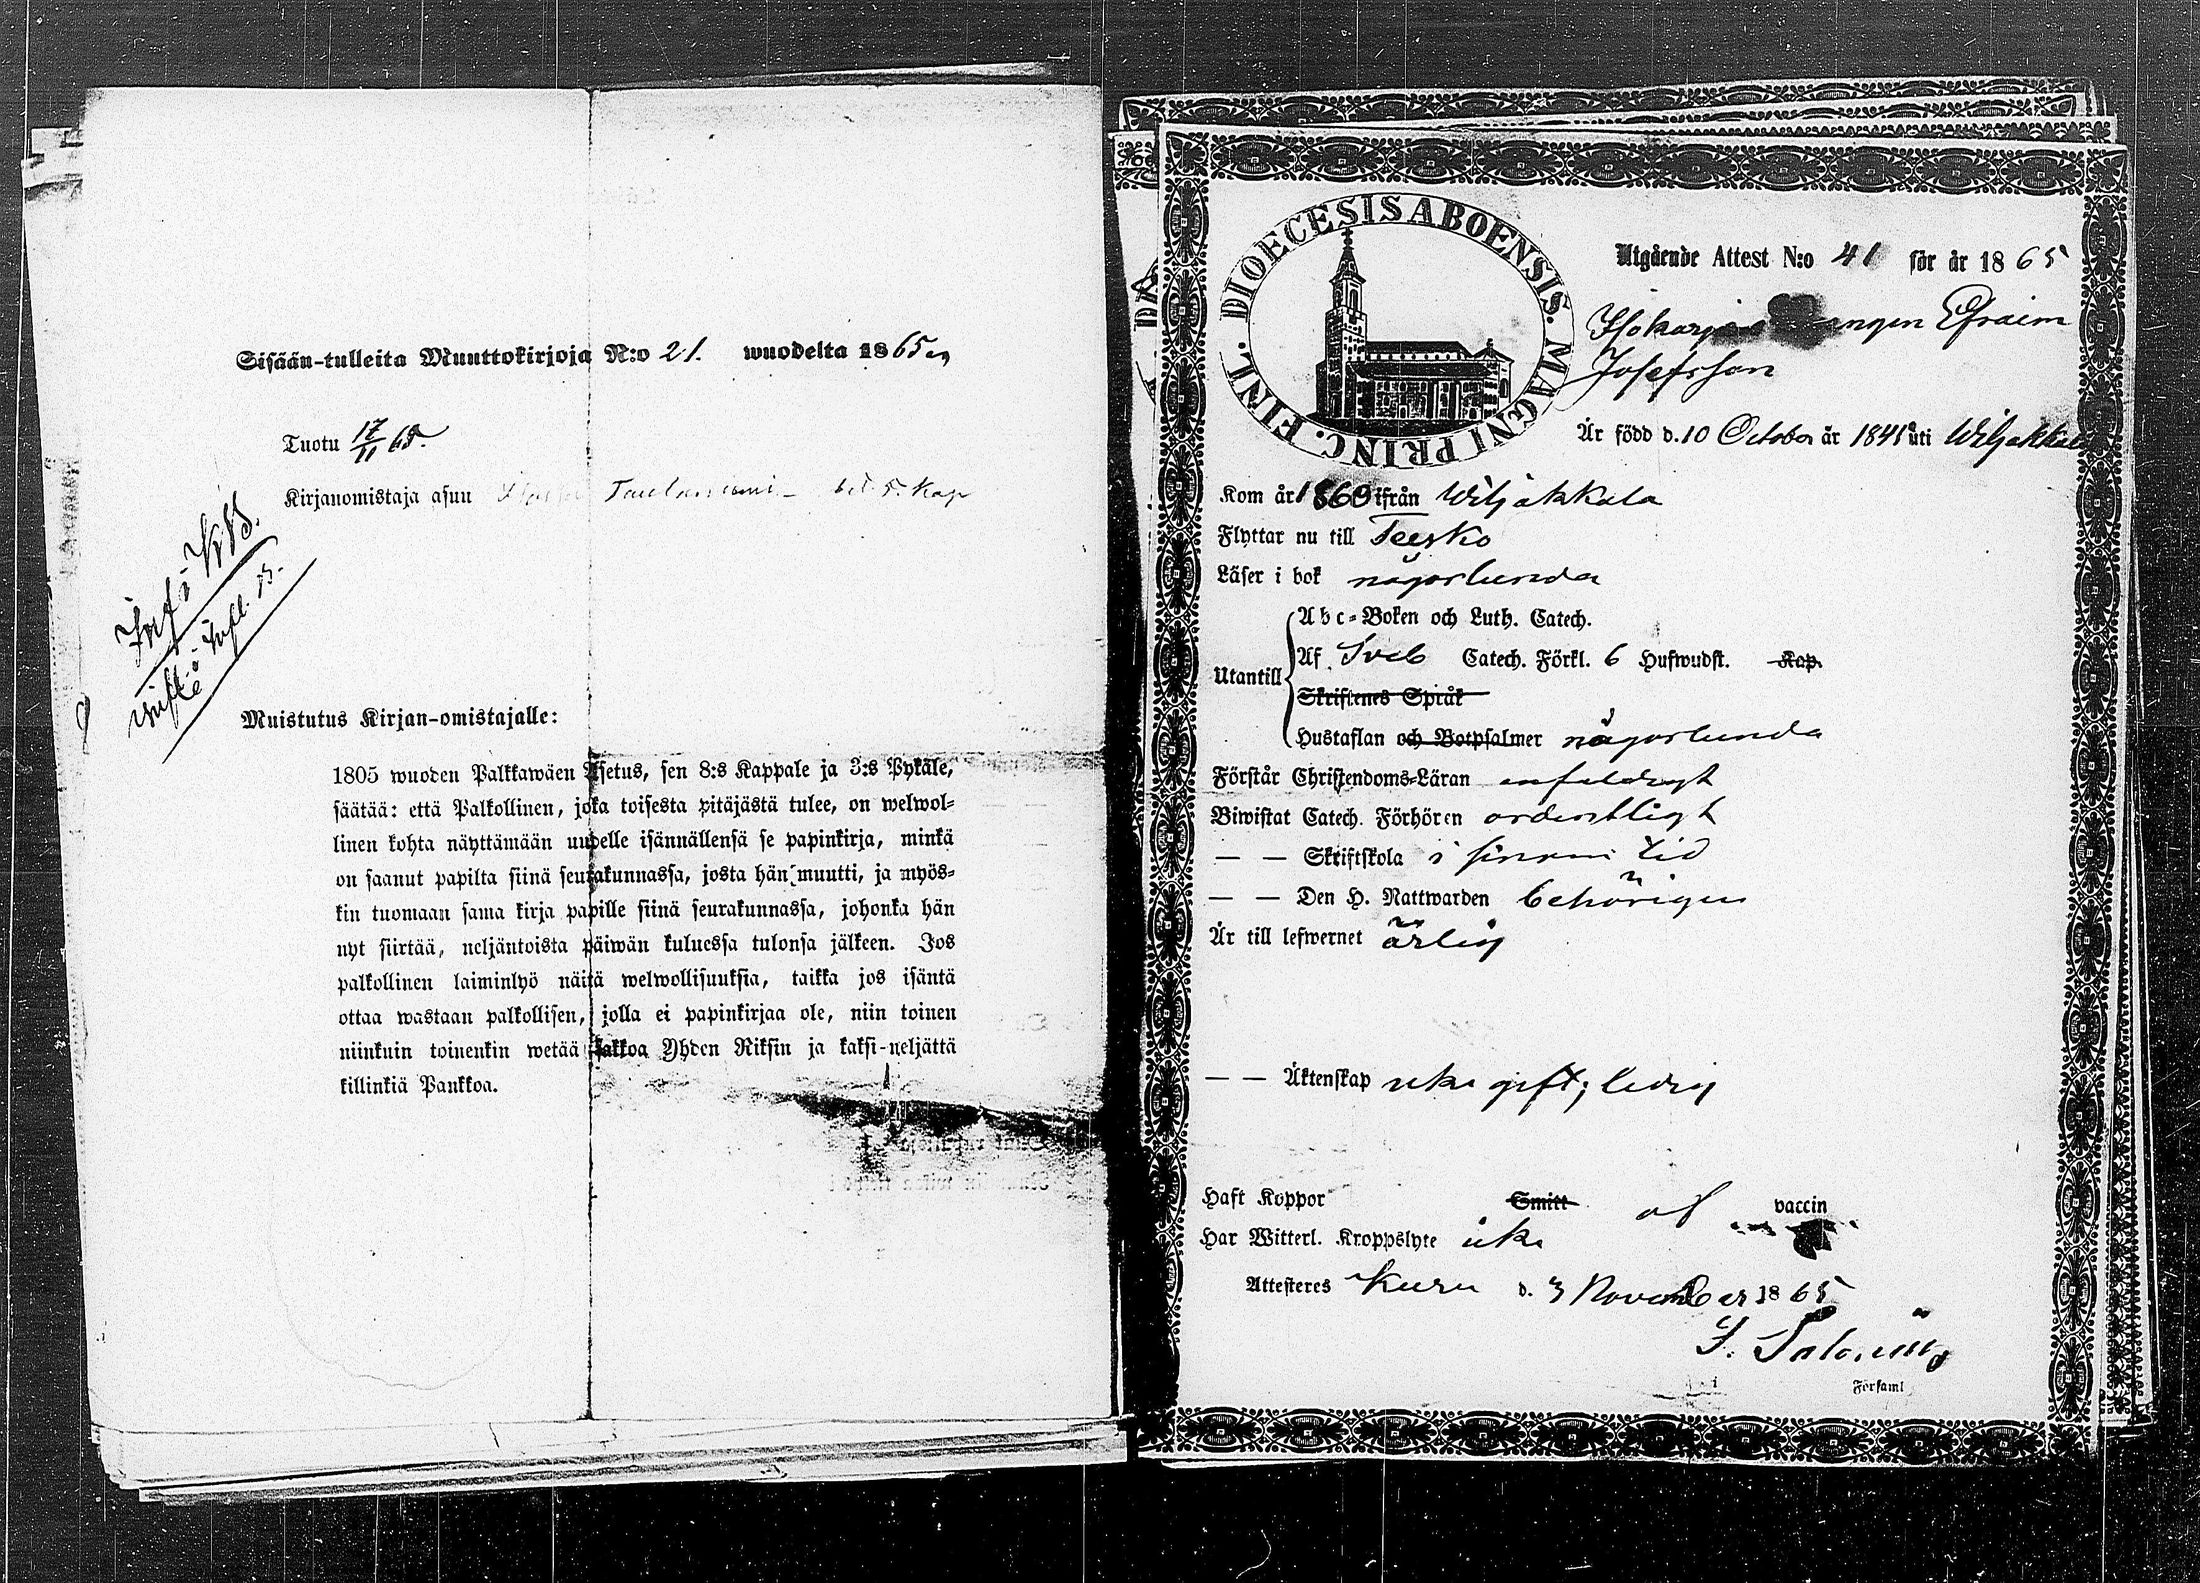 Sisään-tulleita Muuttokirjoja N:o 21. wuodelta 1865
Tuotu 17/11 65.
Kirjanomistaja asuu
Muistutus Kirjan-omistajalle:
1805 wuoden Palkkawäen Asetus, sen 8:s Kappale ja 3:s Pykäle,
säätää: että Palkollinen, joka toisesta pitäjästä tulee, on welwol-
linen kohta näyttämään uudelle isännällensä se papinkirja, minkä
on saanut papilta siinä seurakunnassa, josta hän muutti, ja myös-
kin tuomaan sama kirja papille siinä seurakunnassa, johonka hän
nyt siirtää, neljäntoista päiwän kuluessa tulonsa jälkeen. Jos
palkollinen laiminlyö näitä welwollisuuksia, taikka jos isäntä
ottaa wastaan palkollisen, jolla ei papinkirjaa ole, niin toinen
niinkuin toinenkin wetää sakkoa Yhden Riksin ja kaksi-neljättä
killinkiä Pankkoa.
DIOECESIS ABOENSIS. MAGNI PRINC. FINL.
Utgående Attest N:o 41 för år 1865
Efraim
Josefsson
Är född d. 10 October år 1841 uti Wiljakkala
Kom år 1860 ifrån Wiljakkala
Flyttar nu till Teesko
Läser i bok någorlunda
Abc-Boken och Luth. Catech.
Utantill Af Sveb Catech. Förkl. 6 Hufwudst. Kap.
Skriftenes Språk
Hustaflan och Botpsalmer någorlunda
Förstår Christendoms-Läran enfaldigt
Biwistat Catech. Förhören ordentligt
— — Skriftskola i sinom tid
— — Den H. Nattwarden behörigen
Är till lefwernet ärlig
— — Äktenskap icke gift; ledig
Haft Koppor Smitt af vaccin
Har Witterl. Kroppslyte icke
Attesteres Kuru d. 3 November 1865
Församl